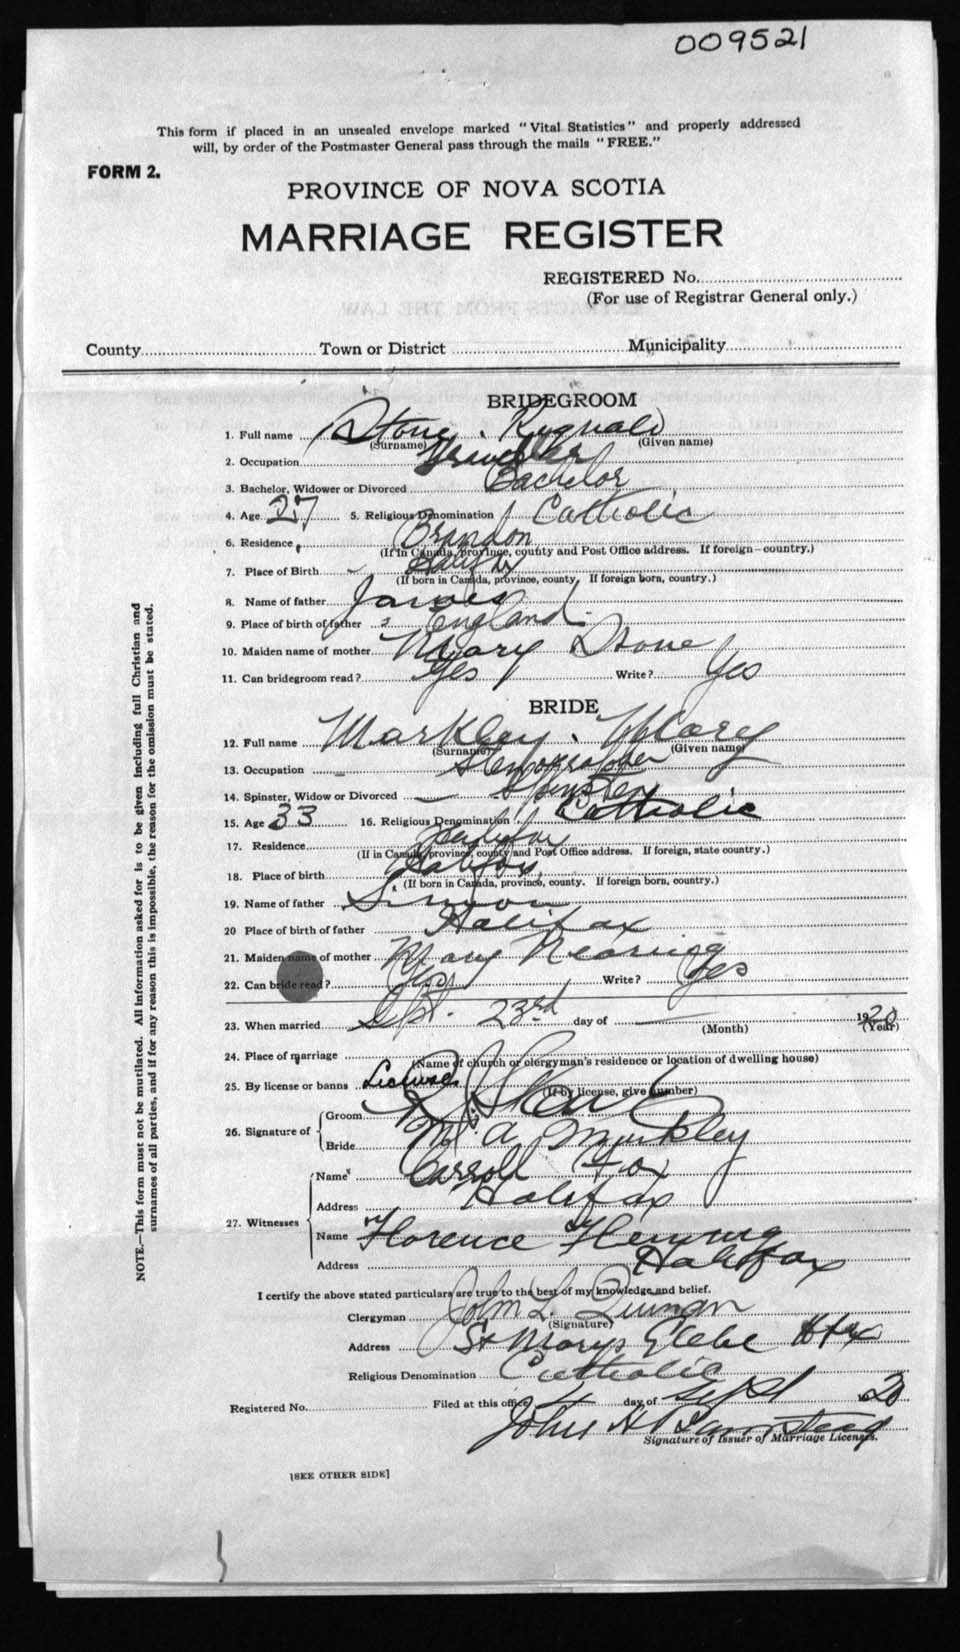 009521
This form if placed in an unsealed envelope marked "Vital Statistics" and properly addressed
will, by order of the Postmaster General pass through the mails "FREE."
FORM 2.
PROVINCE OF NOVA SCOTIA
MARRIAGE REGISTER
REGISTERED No.
(For use of Registrar General only.)
County Town or District Municipality
BRIDEGROOM
1. Full name Stone
(Surname) (Given name)
2. Occupation
3. Bachelor, Widower or Divorced Bachelor
4. Age 27 5. Religious Denomination Catholic
6. Residence Brandon
(If in Canada, province, county and Post Office address. If foreign-country.)
7. Place of Birth Halifax
(If born in Canada, province, county. If foreign born, country.)
8. Name of father James
9. Place of birth of father England
10. Maiden name of mother Mary Stone
11. Can bridegroom read? Yes Write? Yes
BRIDE
12. Full name Markley. Mary
(Surname) (Given name)
13. Occupation Stenographer
14. Spinster, Widow or Divorced Spinster
15. Age 33 16. Religious Denomination Catholic
17. Residence Halifax
(If in Canada, province, county and Post Office address. If foreign, state country.)
18. Place of birth Halifax
(If born in Canada, province, county. If foreign born, country.)
19. Name of father Simon
20 Place of birth of father Halifax
21. Maiden name of mother Mary Nearing
22. Can bride read? Yes Write? Yes
23. When married Sept. 23rd day of 1920
(Month) (Year)
24. Place of marriage
(Name of church or clergyman's residence or location of dwelling house)
25. By license or banns License
(If by license, give number)
26. Signature of Groom
Bride M. A. Markley
27. Witnesses Name Carroll Fox
Address Halifax
Name Florence Fleming
Address Halifax
I certify the above stated particulars are true to the best of my knowledge and belief.
Clergyman John L. Quinan
(Signature)
Address St Marys Glebe Hfx
Religious Denomination Catholic
Registered No. Filed at this office day of Sept 20
John H
Signature of Issuer of Marriage Licenses.
[SEE OTHER SIDE]
NOTE.—This form must not be mutilated. All information asked for is to be given including full Christian and
surnames of all parties, and if for any reason this is impossible, the reason for the omission must be stated.